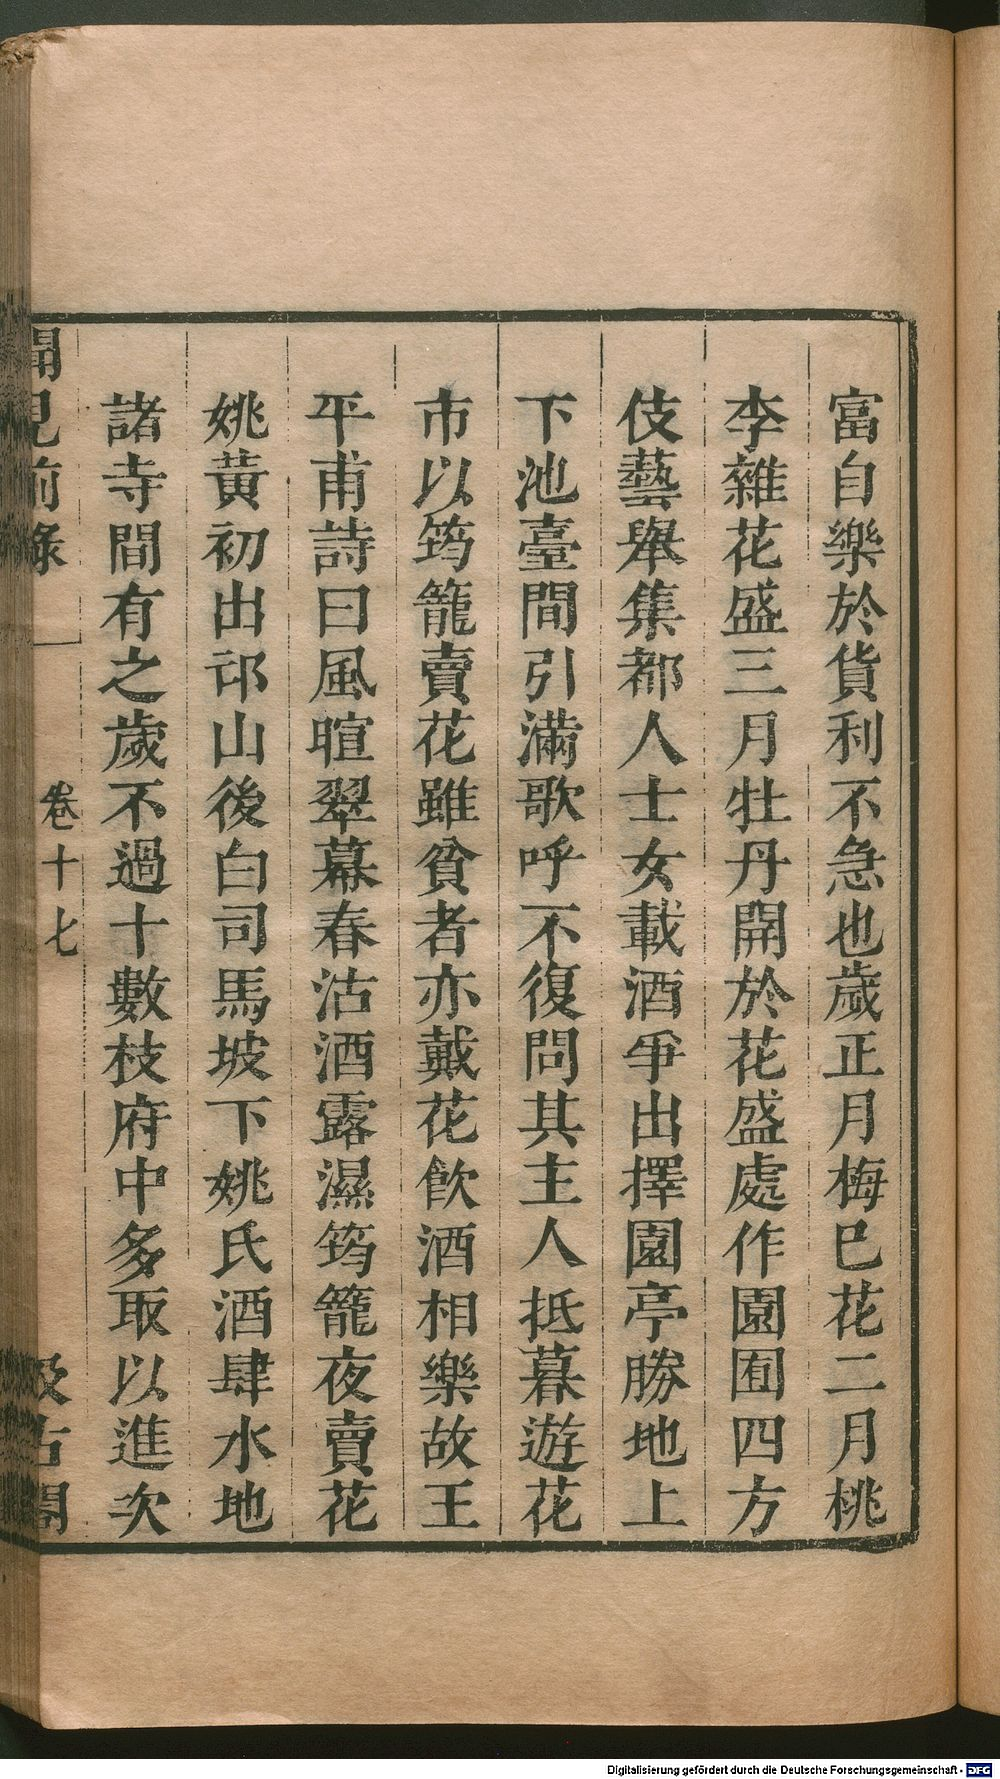 富自樂於貨利不急也歲正月梅巳花二月桃
李雜花盛三月牡丹開於花盛處作園囿四方
伎藝舉集都人士女載酒爭出擇園亭勝地上
下池臺間引滿歌呼不復問其主人抵暮遊花
市以筠籠賣花雖貧者亦戴花飲酒相樂故王
平甫詩曰風暄翠幕春沽酒露濕筠籠夜賣花
姚黃初出邙山後白司馬坡下姚氏酒肆水地
諸寺間有之歲不過十數枝府中多取以進次
聞見前錄 卷十七 汲古閣
Digitalisierung gefördert durch die Deutsche Forschungsgemeinschaft - DFG